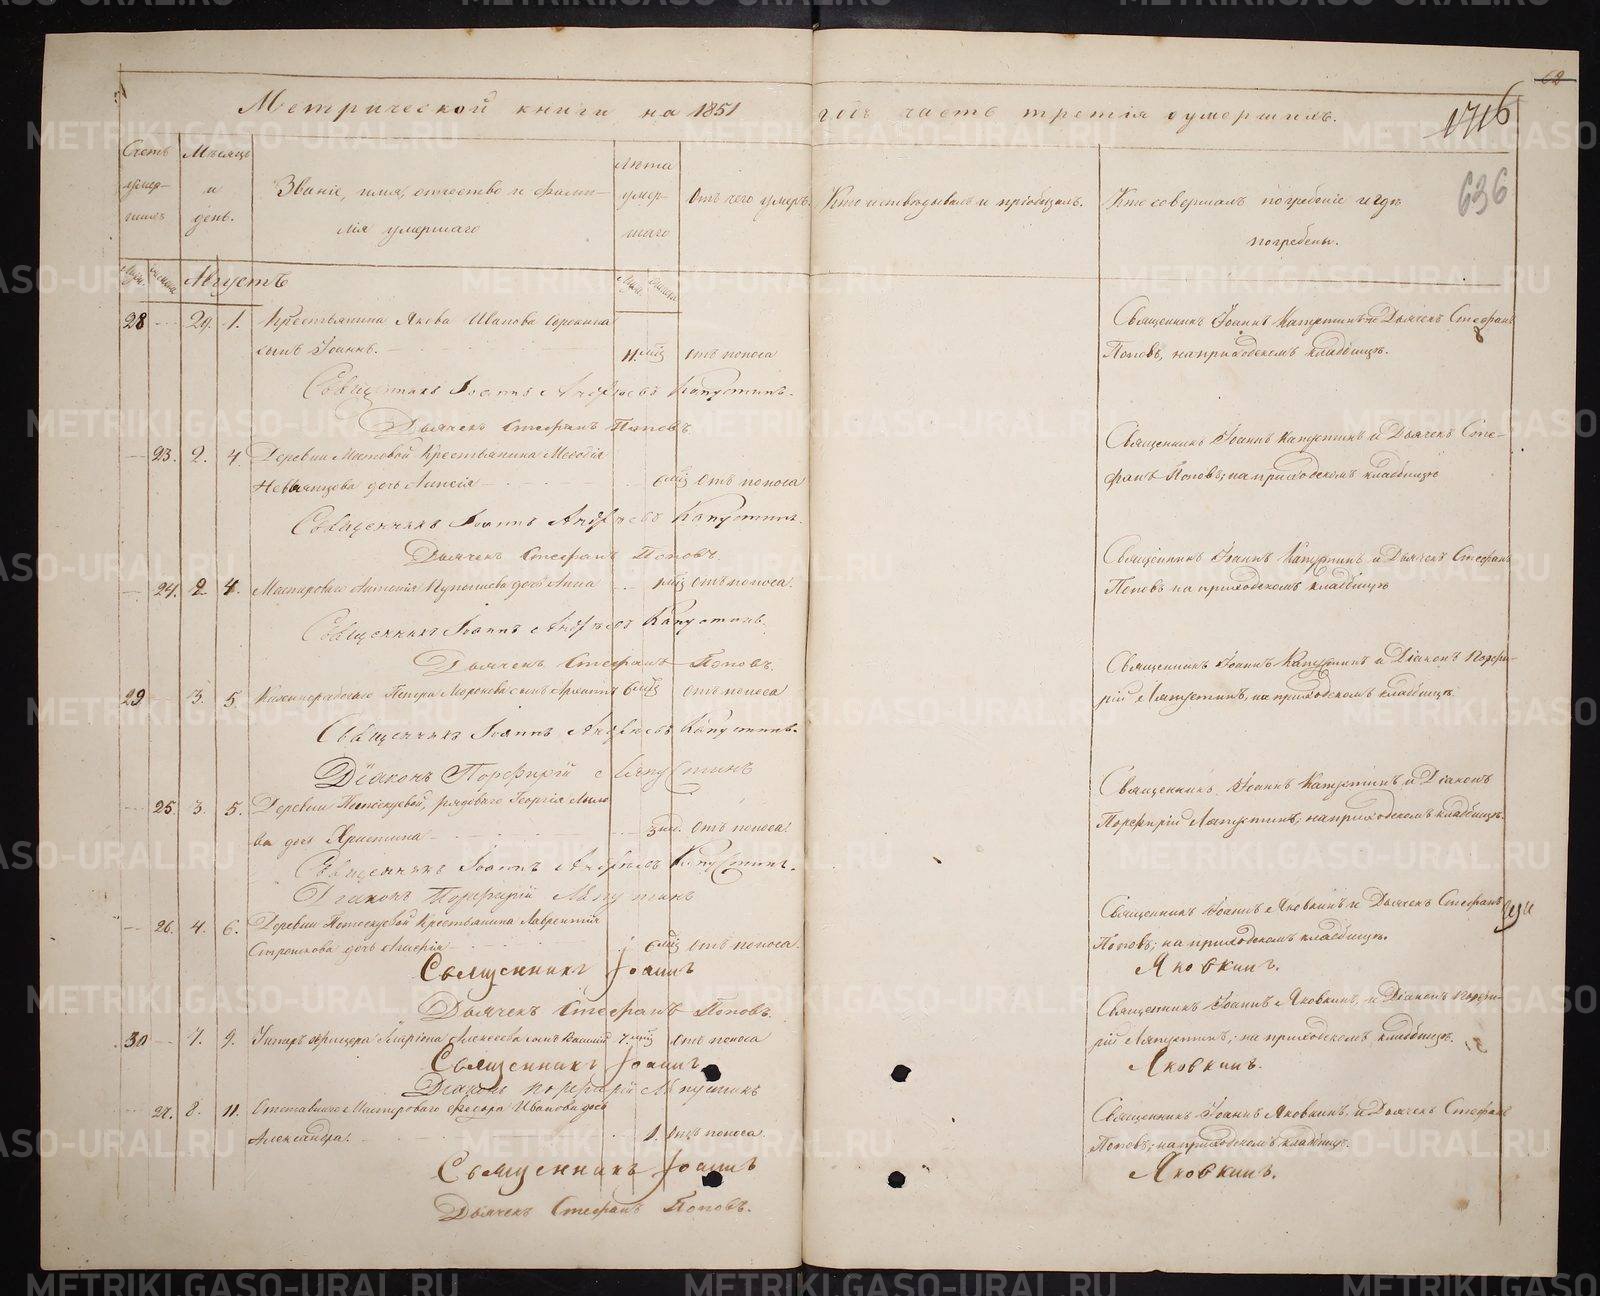 Метрической книги на 1851 годъ часть третія о умершихъ.
1716
636
Счетъ умер-шихъ
Мѣсяцъ и день.
Званіе, имя, отчество и фами-
лія умершаго
Лѣта умер-шаго
Отъ чего умеръ.
Кто исповѣдывалъ и пріобщалъ.
Кто совершалъ погребеніе и гдѣ
погребены.
Августъ
28 29. 1. Крестьянина Якова Иванова Сорокина
сынъ Іоаннъ. 11. мѣ. отъ поноса
Священникъ Іоаннъ Капустинъ и Дьячекъ Стефанъ
Поповъ, на приходскомъ кладбищѣ.
Священникъ Іоаннъ Андреевъ Капустинъ.
Дьячекъ Стефанъ Поповъ.
23. 2. 4. Деревни Крестьянина Меѳодія
дочь Анисія 6 мѣ. отъ поноса
Священникъ Іоаннъ Капустинъ и Дьячекъ Сте-
фанъ Поповъ, на приходскомъ кладбищѣ
Священникъ Іоаннъ Андреевъ Капустинъ.
Дьячекъ Стефанъ Поповъ
24. 2. 4. Мастероваго дочь Анна мѣ. отъ поноса.
Священникъ Іоаннъ Капустинъ и Дьячекъ Стефанъ
Поповъ на приходскомъ кладбищѣ
Священникъ Іоаннъ Андреевъ Капустинъ.
Дьячекъ Стефанъ Поповъ.
29 3. 5. Петра Миронова сынъ 6 мѣ. отъ поноса
Священникъ Іоаннъ Капустинъ и Діаконъ Порфи-
рій Ляпустинъ, на приходскомъ кладбищѣ.
Священникъ Іоаннъ Андреевъ Капустинъ.
Діаконъ Порфирій Ляпустинъ
25. 3. 5. Деревни рядоваго Георгія
ва дочь Христина 3 нед. отъ поноса.
Священникъ Іоаннъ Капустинъ и Діаконъ
Порфирій Ляпустинъ, на приходскомъ кладбищѣ.
Священникъ Іоаннъ Андреевъ Капустинъ.
Діаконъ Порфирій Ляпустинъ
26. 4. 6. Деревни Крестьянина Лаврентія
дочь 6 мѣ. отъ поноса.
Священникъ Іоаннъ Яковкинъ и Дьячекъ Стефанъ
Поповъ; на приходскомъ кладбищѣ.
Священникъ Іоаннъ Яковкинъ.
Дьячекъ Стефанъ Поповъ.
30 7. 9. Унтеръ офицера Алексеева сынъ 7. мѣ. отъ поноса
Священникъ Іоаннъ Яковкинъ, и Діаконъ Порфи-
рій Ляпустинъ, на приходскомъ кладбищѣ.
Священникъ Іоаннъ Яковкинъ.
Діаконъ Порфирій Ляпустинъ
27. 8. 11. Отставнаго Мастероваго Иванова дочь
Александра. 1. отъ поноса.
Священникъ Іоаннъ Яковкинъ, и Дьячекъ Стефанъ
Поповъ; на приходскомъ кладбищѣ.
Священникъ Іоаннъ Яковкинъ.
Дьячекъ Стефанъ Поповъ.
METRIKI.GASO-URAL.RU